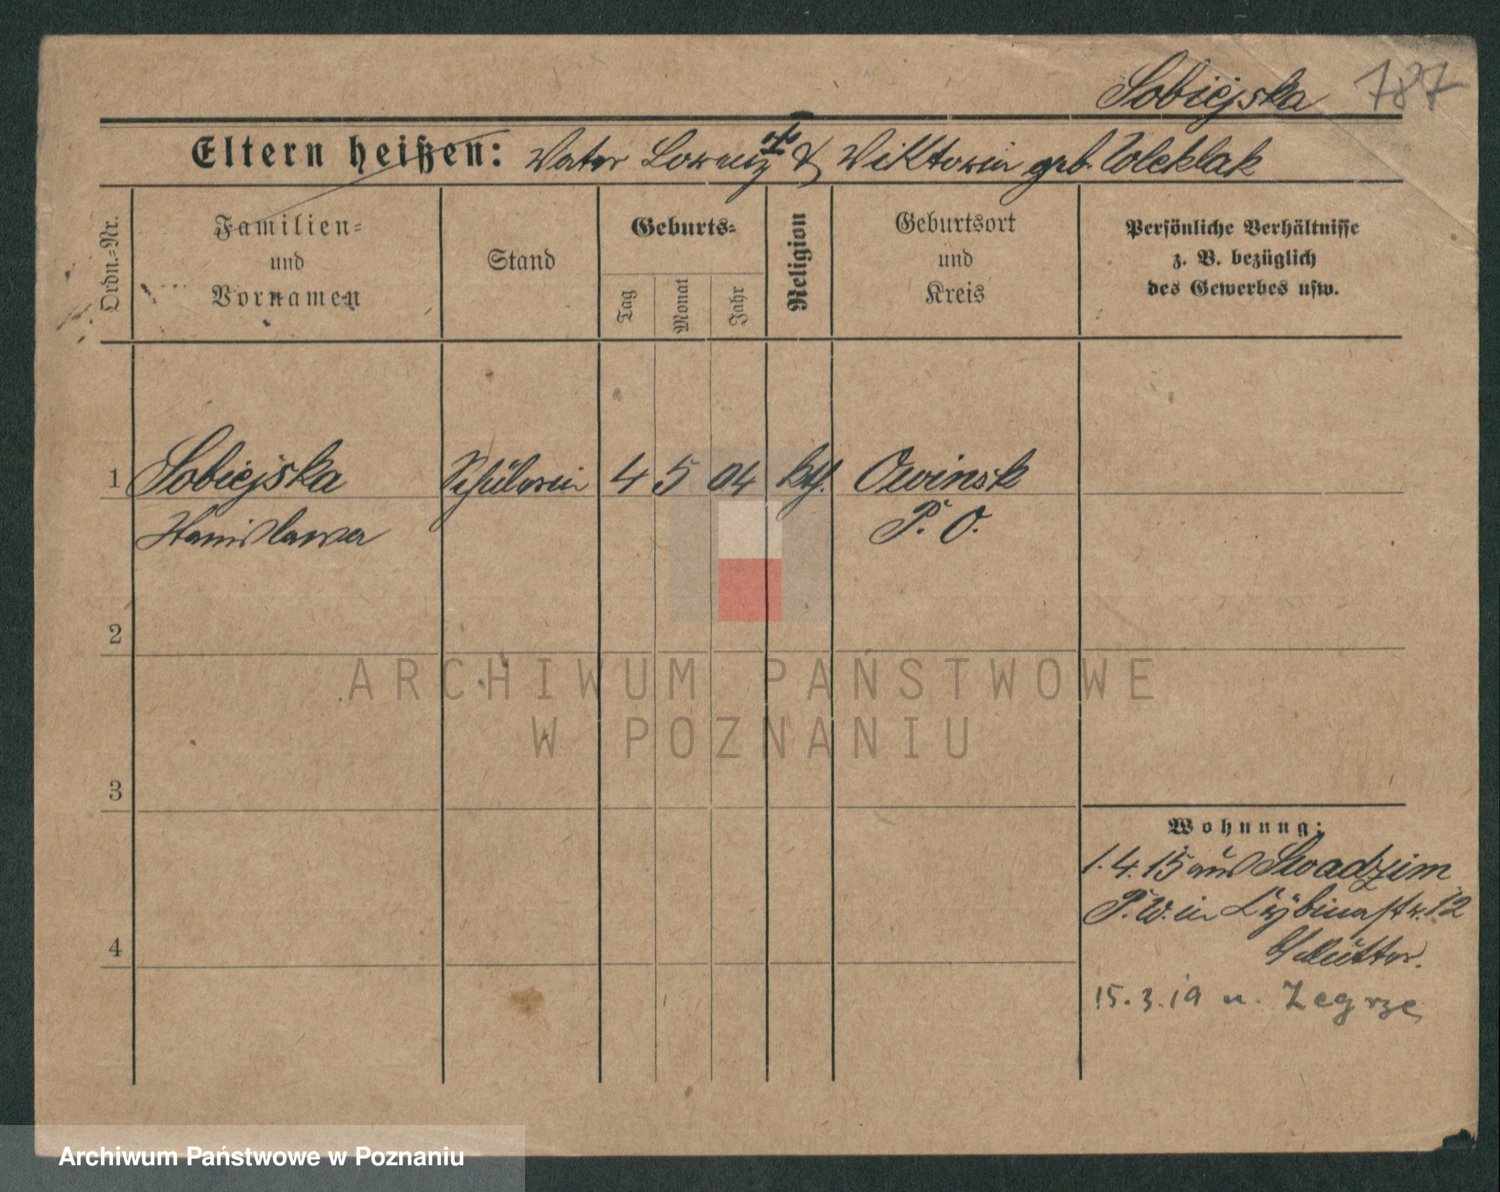 Sobiejska 787
Eltern heißen: Vater Lorenz & Wiktoria geb. Woleklak
Ordn.-Nr.
Familien-
und
Vornamen
Stand
Geburts-
Tag
Monat
Jahr
Religion
Geburtsort
und
Kreis
Persönliche Verhältnisse
z. B. bezüglich
des Gewerbes usw.
1 Sobiejska Schülerin 4 5 04 kth. Owinsk
Stanislawa P. O.
2
ARCHIWUM PAŃSTWOWE
W POZNANIU
3
Wohnung:
1.4.15 aus Swadzim
P. W. in Cybinastr. 12
b/ Mutter.
4
15.3.19 n. Zegrze
Archiwum Państwowe w Poznaniu